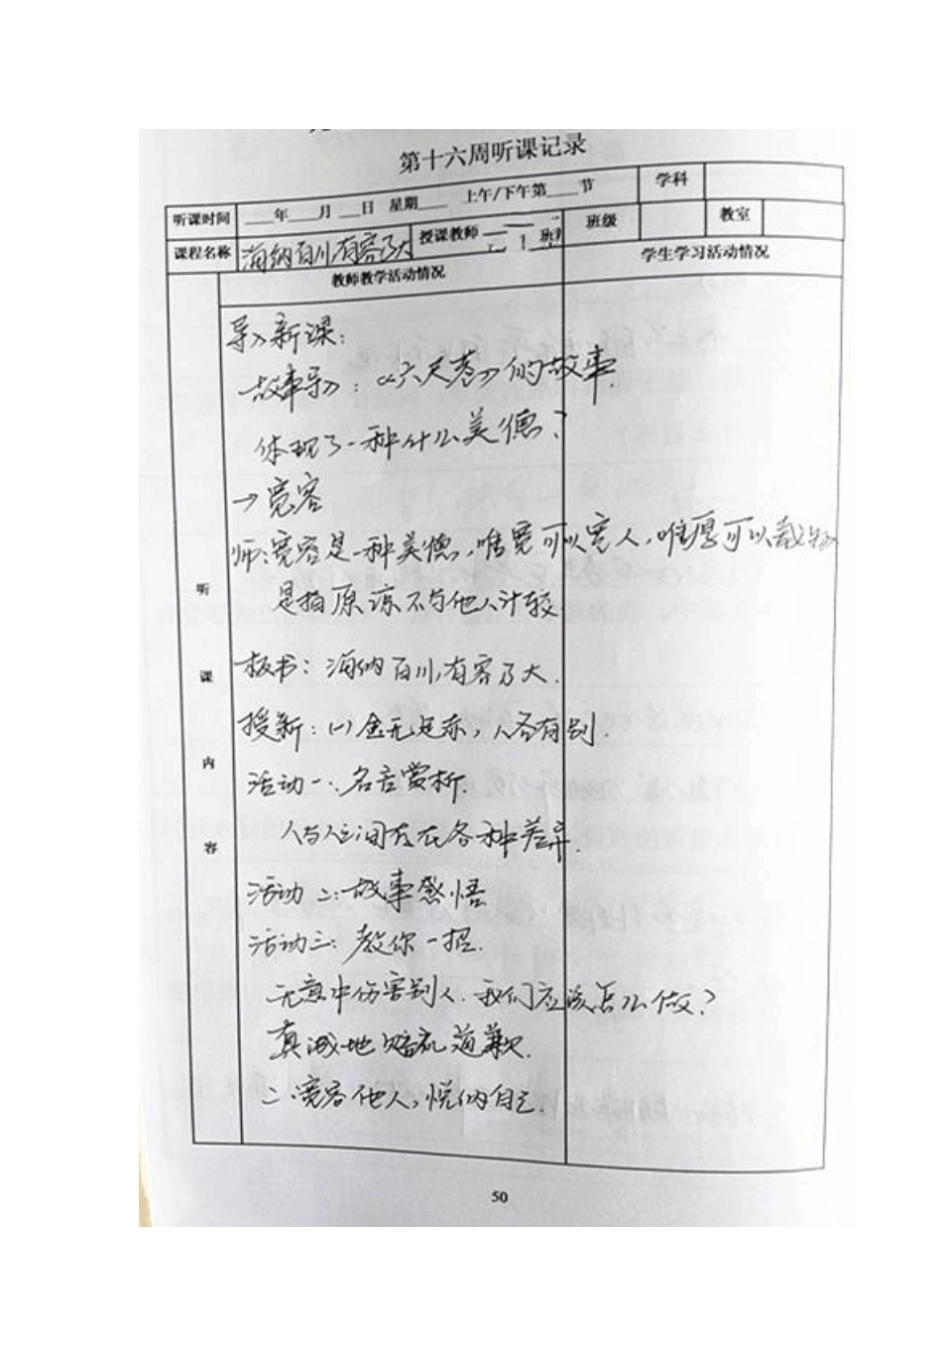 第十六周听课记录
听课时间 ___年___月___日 星期___ 上午/下午第___节 学科
课程名称 海纳百川,有容乃大 授课教师 班级 教室
教师教学活动情况 学生学习活动情况
听课内容
导入新课:
故事导入:《六尺巷》的故事.
体现了一种什么美德?
→宽容
师:宽容是一种美德,唯宽可以容人,唯厚可以载物
是指原谅不与他人计较
板书:海纳百川,有容乃大.
授新:(一)金无足赤,人各有别.
活动一:名言赏析.
人与人之间存在各种差异.
活动二:故事感悟
活动三:教你一招.
无意中伤害别人.我们应该怎么做?
真诚地赔礼道歉.
二.宽容他人,悦纳自己.
50